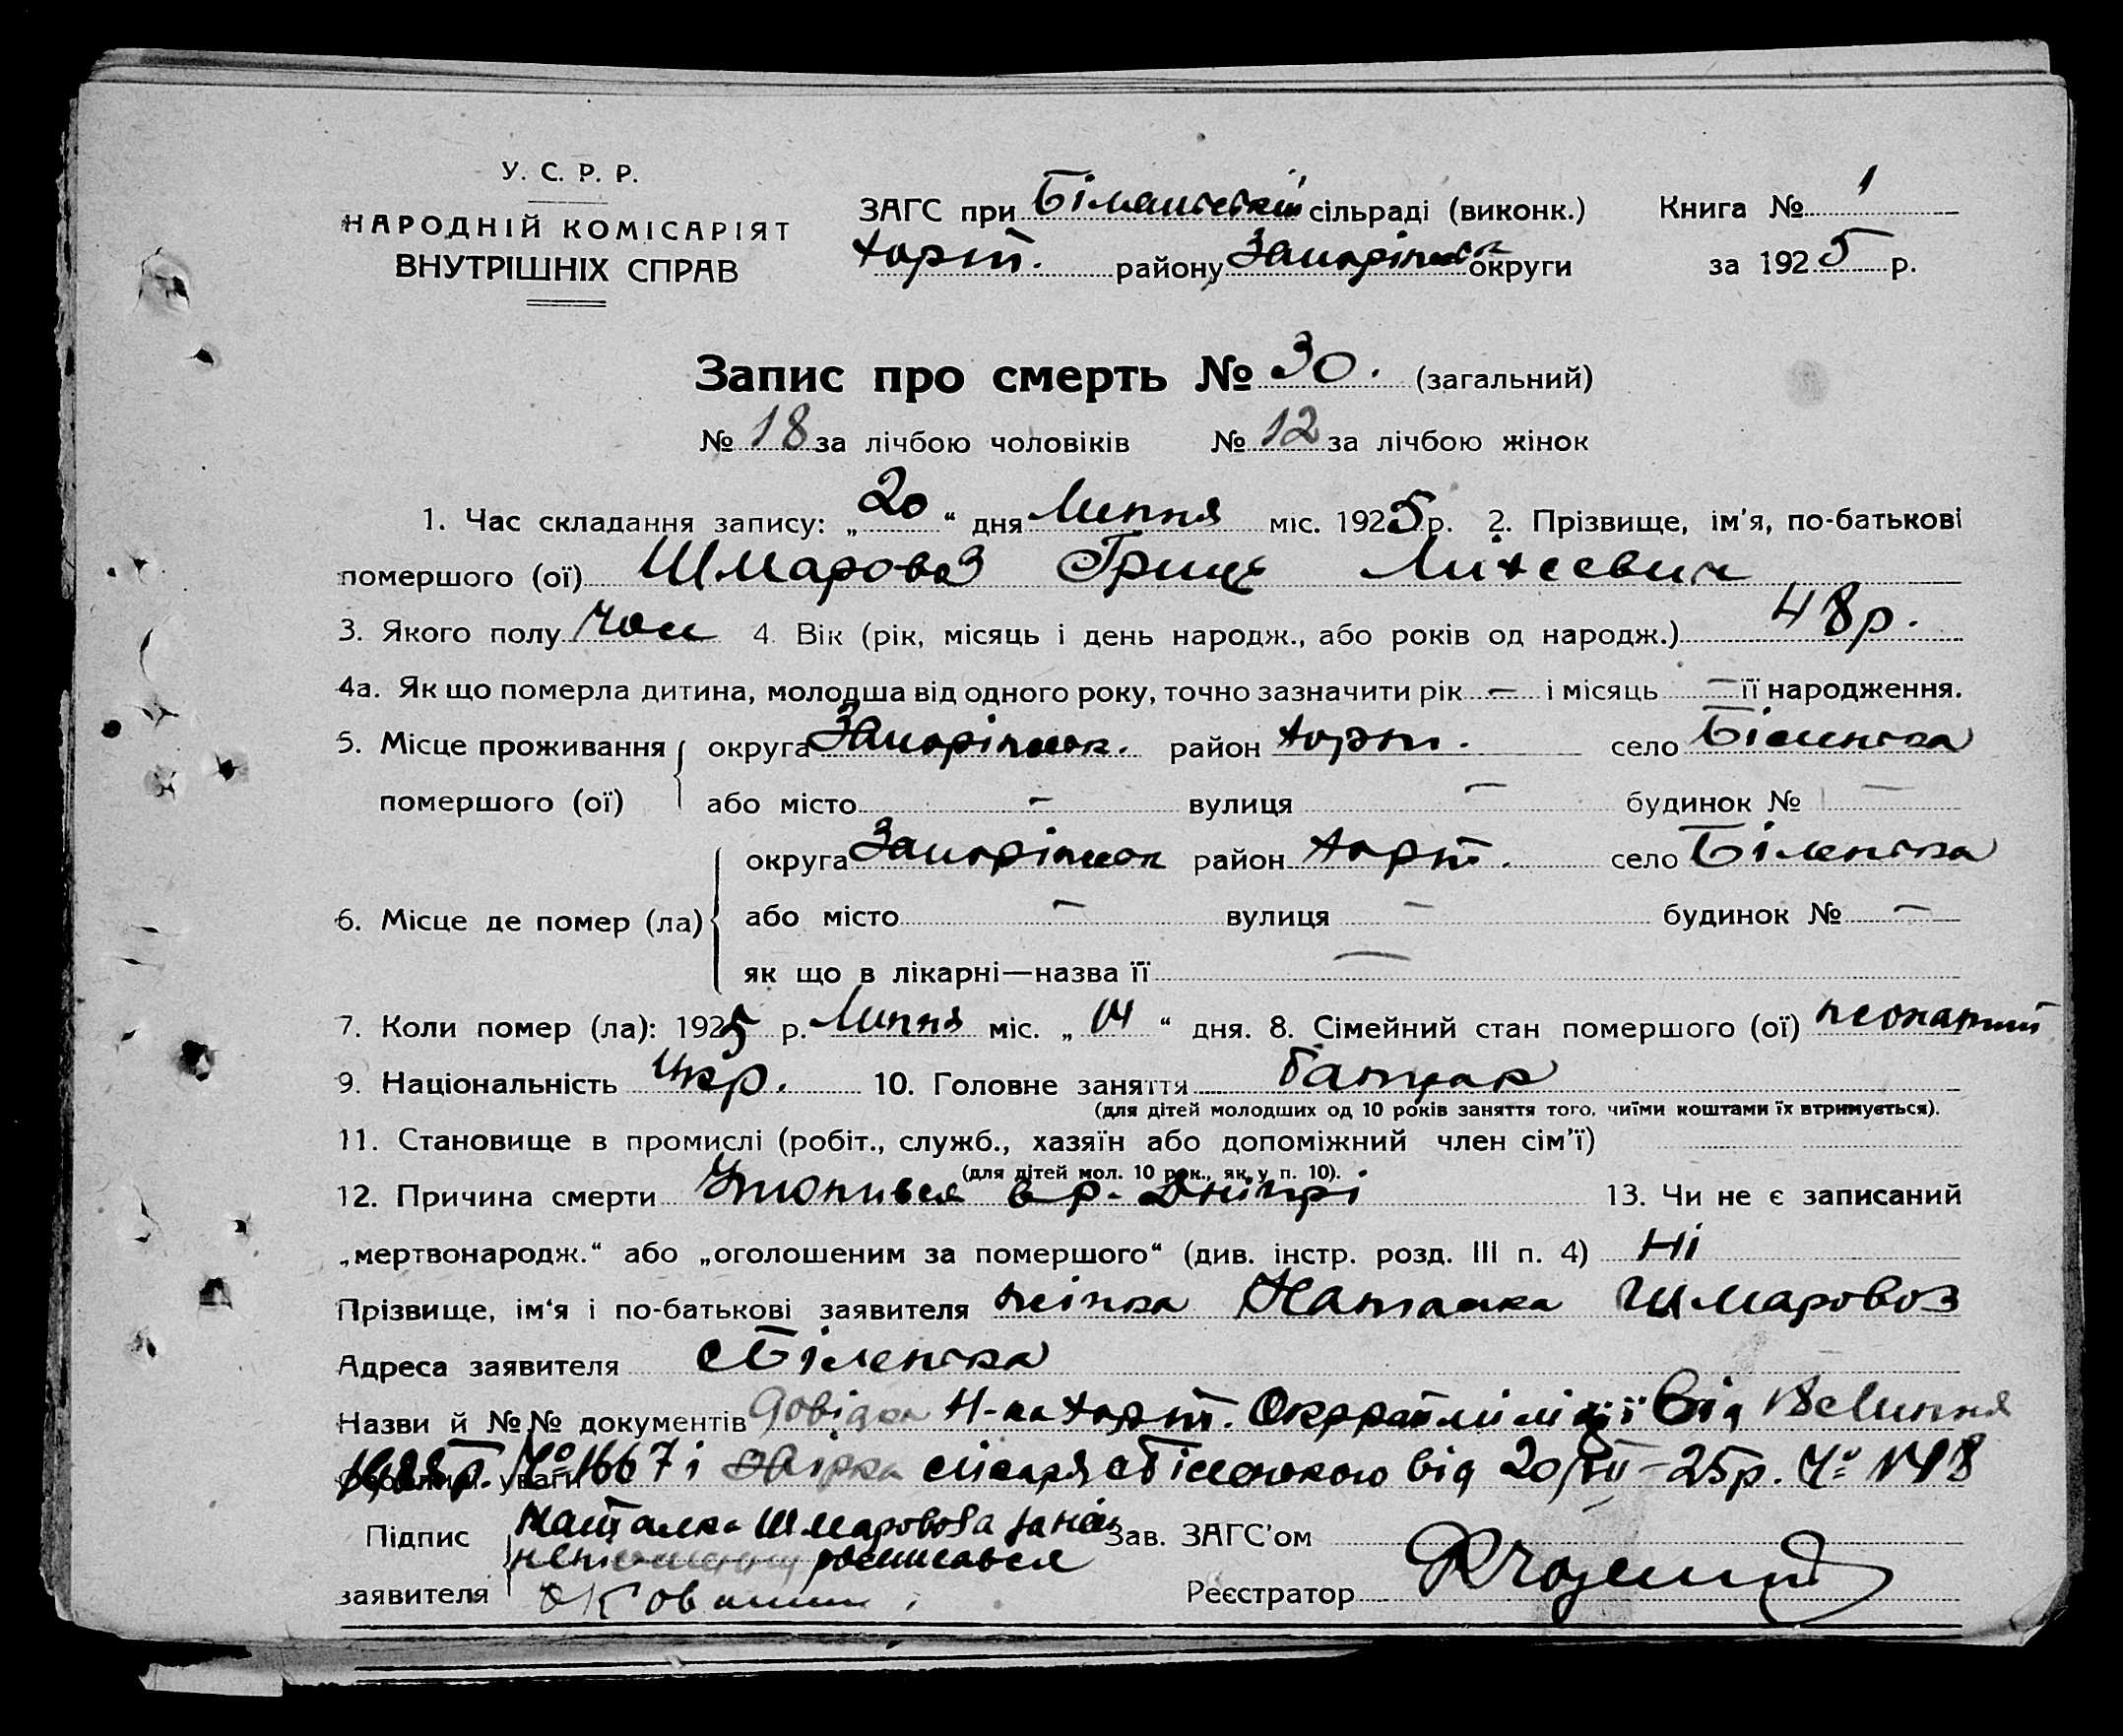 У. С. Р. Р.
НАРОДНІЙ КОМІСАРІЯТ
ВНУТРІШНІХ СПРАВ
ЗАГС при Біленській сільраді (виконк.)
Хорт. району Запоріжськ округи
Книга № 1
за 1925 р.
Запис про смерть № 30. (загальний)
№ 18 за лічбою чоловіків № 12 за лічбою жінок
1. Час складання запису: „20“ дня Липня міс. 1925 р. 2. Прізвище, ім'я, по-батькові
помершого (ої) Шмаровоз Гриць
3. Якого полу чол 4. Вік (рік, місяць і день народж., або років од народж.) 48 р.
4а. Як що померла дитина, молодша від одного року, точно зазначити рік — і місяць — її народження.
5. Місце проживання округа Запоріжськ. район Хорт. село Біленька
помершого (ої) або місто — вулиця — будинок № —
округа Запоріжськ район Хорт. село Біленька
6. Місце де помер (ла) або місто — вулиця — будинок № —
як що в лікарні—назва її —
7. Коли помер (ла): 1925 р. Липня міс. „14“ дня. 8. Сімейний стан помершого (ої) жонатий
9. Національність Укр. 10. Головне заняття батрак
(для дітей молодших од 10 років заняття того, чиїми коштами їх втримується).
11. Становище в промислі (робіт., служб., хазяїн або допоміжний член сім'ї)
(для дітей мол. 10 рок., як у п. 10).
12. Причина смерти Утопився в р. Дніпрі 13. Чи не є записаний
„мертвонародж.“ або „оголошеним за помершого“ (див. інстр. розд. III п. 4) Ні
Прізвище, ім'я і по-батькові заявителя жінка Наталка Шмаровоз
Адреса заявителя с Біленька
Назви й №№ документів Довідка Н-ка Хорт. міліції від 18 Липня
1925 р. № 1667 і лікаря с Біленького від 20/VII–25 р. № 1418
Підпис Наталка Шмаровоза за неї Зав. ЗАГС'ом
неписьменну росписався
заявителя Реєстратор